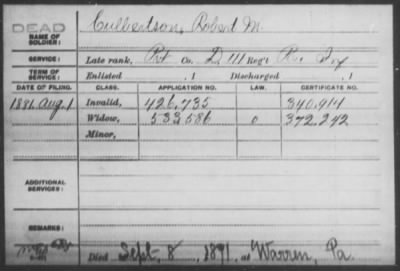 DEAD
NAME OF SOLDIER: Culbertson, Robert M.
SERVICE: Late rank, Pvt Co. D, 111 Reg't Pa. Inf
TERM OF SERVICE: Enlisted , 1 Discharged , 1
DATE OF FILING. CLASS. APPLICATION NO. LAW. CERTIFICATE NO.
1881 Aug. 1 Invalid, 426,735 340,914
Widow, 533,586 372,242
Minor,
ADDITIONAL SERVICES:
REMARKS:
Died Sept. 8, 1891, at Warren, Pa.